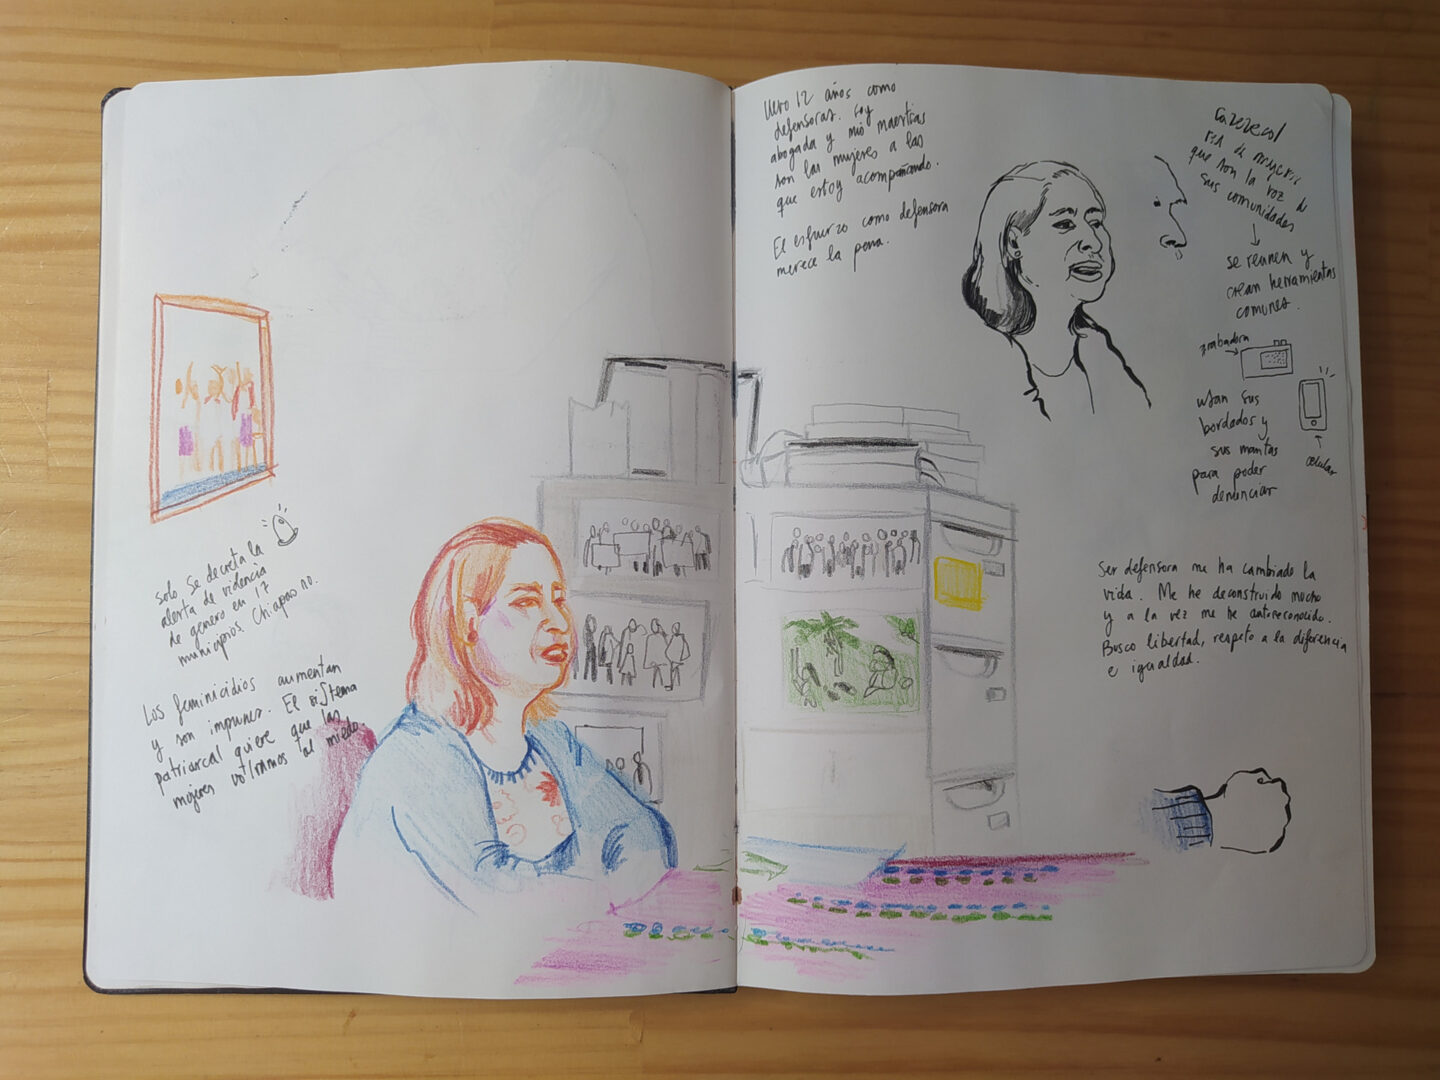 Solo se decreta la
alerta de violencia
de género en 17
municipios. Chiapas no.
Los feminicidios aumentan
y son impunes. El sistema
patriarcal quiere que las
mujeres volvamos al miedo.
Llevo 12 años como
defensora. Soy
abogada y mis maestras
son las mujeres a las
que estoy acompañando.
El esfuerzo como defensora
merece la pena.
red de mujeres
que son la voz de
sus comunidades
se reunen y
crean herramientas
comunes.
grabadora
celular
usan sus
bordados y
sus mantas
para poder
denunciar
Ser defensora me ha cambiado la
vida. Me he deconstruido mucho
y a la vez me he autorreconocido.
Busco libertad, respeto a la diferencia
e igualdad.